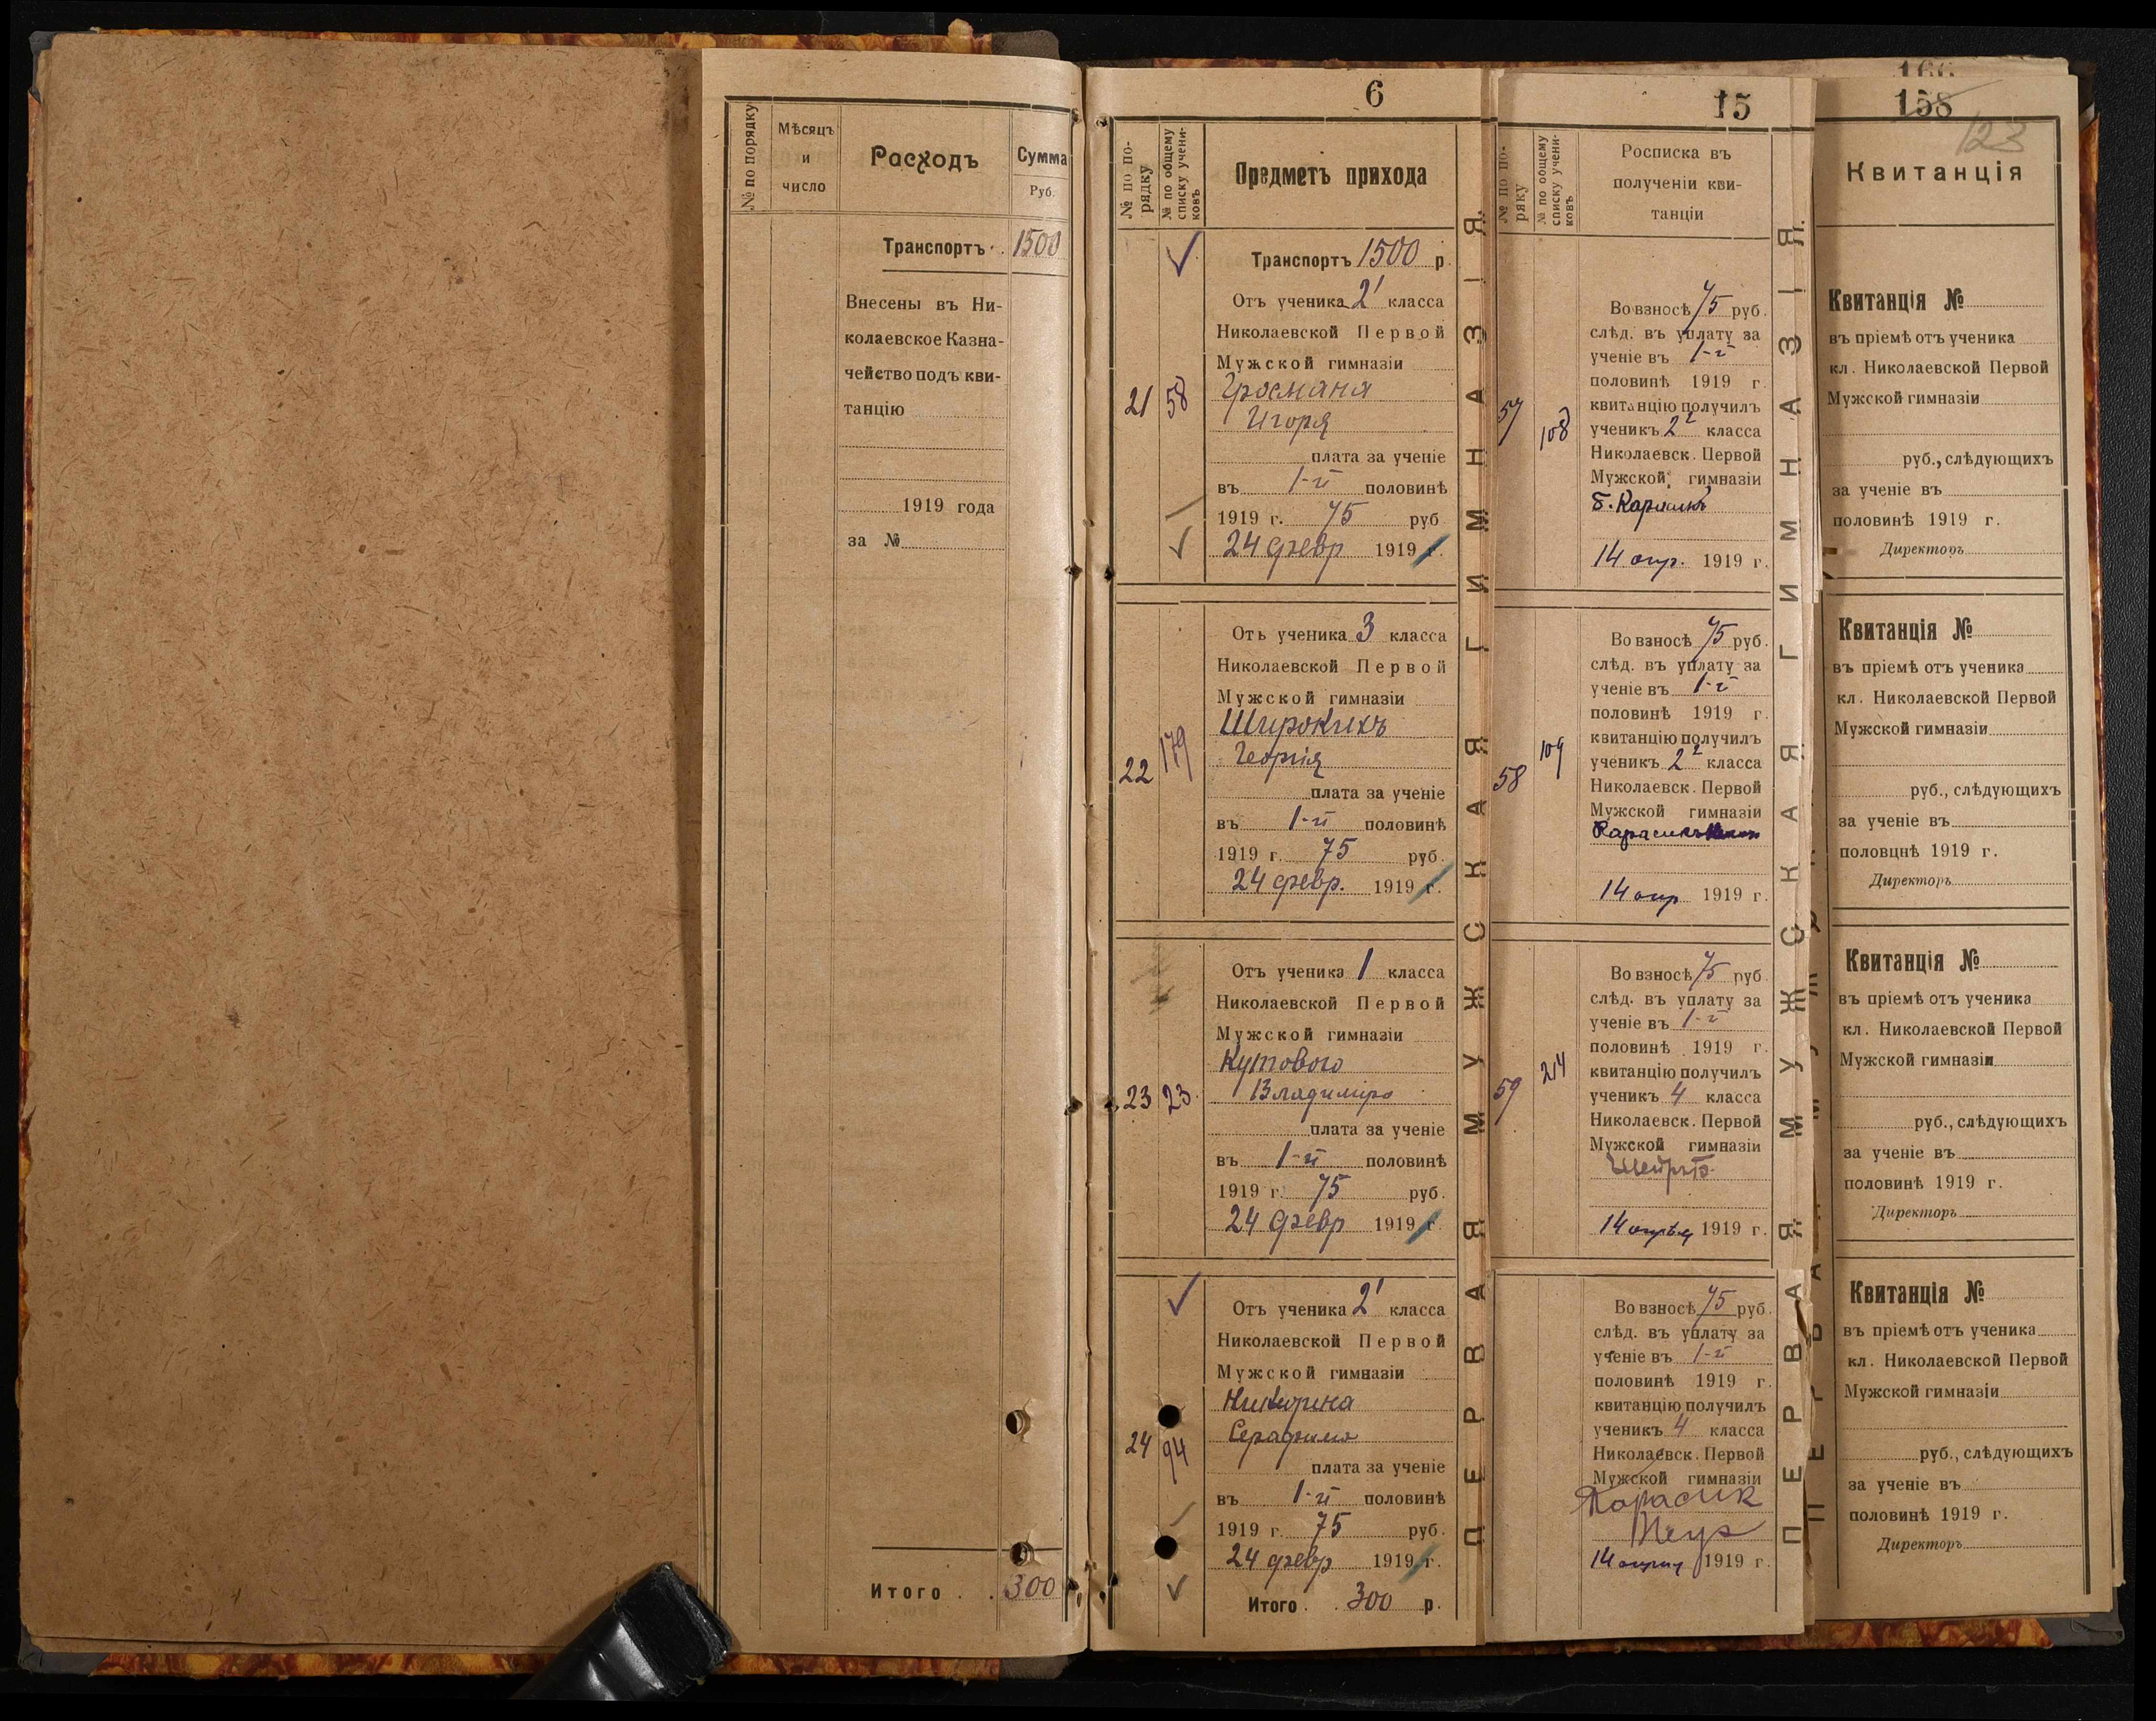 № по порядку
Мѣсяцъ
и
число
Расходъ
Сумма
Руб.
Транспортъ . 1500
Внесены въ Ни-
колаевское Казна-
чейство подъ кви-
танцію
1919 года
за №
Итого . . 300
6
№ по по-
рядку
№ по общему
списку учени-
ковъ
Предметъ прихода
Транспортъ 1500 р.
21 58
Отъ ученика 2¹ класса
Николаевской Первой
Мужской гимназіи
Гросмана
Игоря
плата за ученіе
въ 1-й половинѣ
1919 г. 75 руб
24 февр 1919 г.
22 179
Отъ ученика 3 класса
Николаевской Первой
Мужской гимназіи
Широкихъ
Георгія
плата за ученіе
въ 1-й половинѣ
1919 г. 75 руб.
24 февр. 1919 г.
23 23
Отъ ученика 1 класса
Николаевской Первой
Мужской гимназіи
Кутового
Владиміра
плата за ученіе
въ 1-й половинѣ
1919 г. 75 руб.
24 февр 1919 г.
24 94
Отъ ученика 2¹ класса
Николаевской Первой
Мужской гимназіи
Серафима
плата за ученіе
въ 1-й половинѣ
1919 г. 75 руб.
24 февр 1919 г.
Итого . . 300 р.
ПЕРВАЯ МУЖСКАЯ ГИМНАЗІЯ.
15
№ по по-
ряку
№ по общему
списку учени-
ковъ
Росписка въ
полученіи кви-
танціи
57 108
Во взносѣ 75 руб.
слѣд. въ уплату за
ученіе въ 1-й
половинѣ 1919 г.
квитанцію получилъ
ученикъ 2² класса
Николаевск. Первой
Мужской гимназіи
Б. Карасикъ
14 апр. 1919 г.
58 109
Во взносѣ 75 руб.
слѣд. въ уплату за
ученіе въ 1-й
половинѣ 1919 г.
квитанцію получилъ
ученикъ 2² класса
Николаевск. Первой
Мужской гимназіи
Карасикъ
14 апр 1919 г.
59 214
Во взносѣ 75 руб.
слѣд. въ уплату за
ученіе въ 1-й
половинѣ 1919 г.
квитанцію получилъ
ученикъ 4 класса
Николаевск. Первой
Мужской гимназіи
14 апрѣля 1919 г.
Во взносѣ 75 руб.
слѣд. въ уплату за
ученіе въ 1-й
половинѣ 1919 г.
квитанцію получилъ
ученикъ 4 класса
Николаевск. Первой
Мужской гимназіи
Карасик
14 апрѣля 1919 г.
ПЕРВАЯ МУЖСКАЯ ГИМНАЗІЯ.
158
123
Квитанція
Квитанція №
въ пріемѣ отъ ученика
кл. Николаевской Первой
Мужской гимназіи
руб., слѣдующихъ
за ученіе въ
половинѣ 1919 г.
Директоръ
Квитанція №
въ пріемѣ отъ ученика
кл. Николаевской Первой
Мужской гимназіи
руб., слѣдующихъ
за ученіе въ
половцнѣ 1919 г.
Директоръ
Квитанція №
въ пріемѣ отъ ученика
кл. Николаевской Первой
Мужской гимназіи
руб., слѣдующихъ
за ученіе въ
половинѣ 1919 г.
Директоръ
Квитанція №
въ пріемѣ отъ ученика
кл. Николаевской Первой
Мужской гимназіи
руб., слѣдующихъ
за ученіе въ
половинѣ 1919 г.
Директоръ